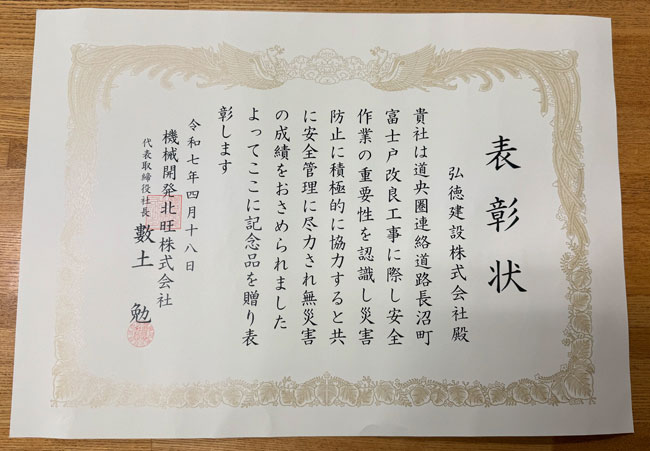 表彰状
弘徳建設株式会社殿
貴社は道央圏連絡道路長沼町
富士戸改良工事に際し安全
作業の重要性を認識し災害
防止に積極的に協力すると共
に安全管理に尽力され無災害
の成績をおさめられました
よってここに記念品を贈り表
彰します
令和七年四月十八日
機械開発北旺株式会社
代表取締役社長 數土 勉